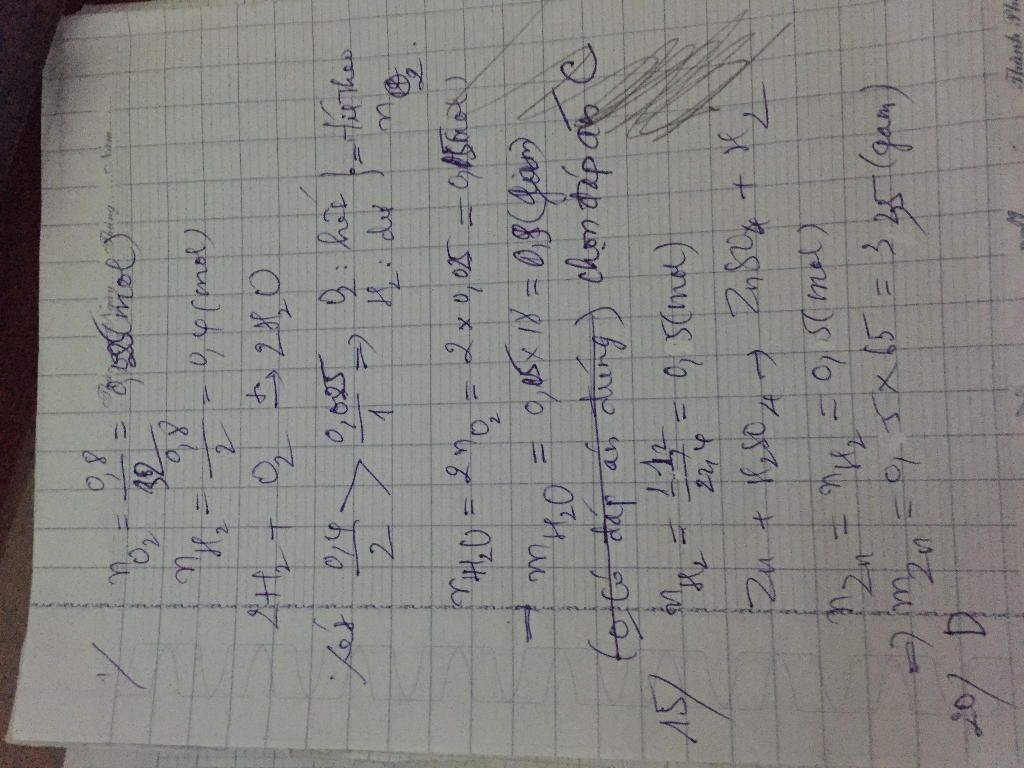 1/ nO2 = 0,8/32 = 0,025 (mol)
nH2 = 0,8/2 = 0,4 (mol)
2H2 + O2 t°→ 2H2O
Xét 0,4/2 > 0,025/1 => O2: hết H2: dư } => tính theo nO2
nH2O = 2nO2 = 2 x 0,025 = 0,05 mol
→ mH2O = 0,05 x 18 = 0,9 (gam)
(0/ có đáp án đúng) chọn đáp án C
15/ nH2 = 11,2/22,4 = 0,5 (mol)
Zn + H2SO4 → ZnSO4 + H2
nZn = nH2 = 0,5 (mol)
=> mZn = 0,5 x 65 = 3 35 (gam)
20/ D